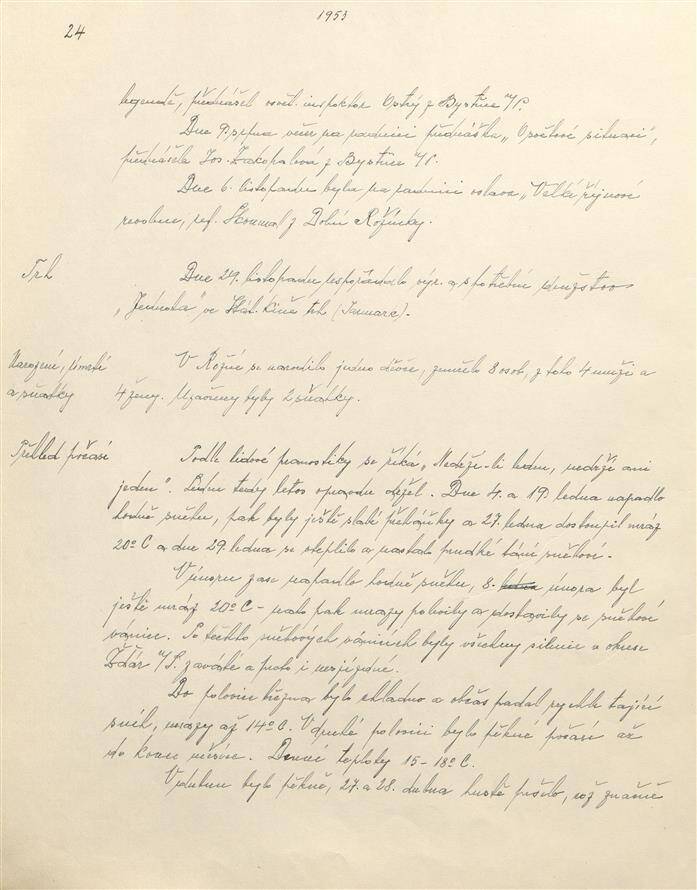 1953
24
legendě, přednášel osvět. inspektor Ostrý z Bystřice n/P.
Dne 9. srpna večer na radnici přednáška „O světové situaci",
přednášela Jos. Zakopalová z Bystřice n/P.
Dne 6. listopadu byla na radnici oslava „Velké říjnové
revoluce, ref. Skoumal z Dolní Rožínky.
Trh
Dne 29. listopadu uspořádalo výr. a spotřební družstvo
„Jednota" ve Stát. kině trh (Jarmark).
Narození, úmrtí
a sňatky
V Rožné se narodilo jedno děvče, zemřelo 8 osob, z toho 4 muži a
4 ženy. Uzavřeny byly 2 sňatky.
Přehled počasí
Podle lidové pranostiky se říká „Nedrží-li leden, nedrží ani
jeden". Leden tedy letos opravdu držel. Dne 4. a 19. ledna napadlo
hodně sněhu, pak byly ještě slabé přeháňky a 27. ledna dostoupil mráz
20° C a dne 29. ledna se oteplilo a nastalo prudké tání sněhové.
V únoru zase napadlo hodně sněhu, 8. února byl
ještě mráz 20° C - nato pak mrazy polevily a dostavily se sněhové
vánice. Po těchto sněhových vánicích byly všechny silnice v okrese
Žďár n/S. zaváté a proto i nesjízdné.
Do polovice března bylo chladno a občas padal rychle tající
sníh, mrazy až 14° C. V druhé polovici bylo pěkné počasí až
do konce měsíce. Denní teploty 15 - 18° C.
V dubnu bylo pěkně, 27. a 28. dubna hustě pršelo, což značně